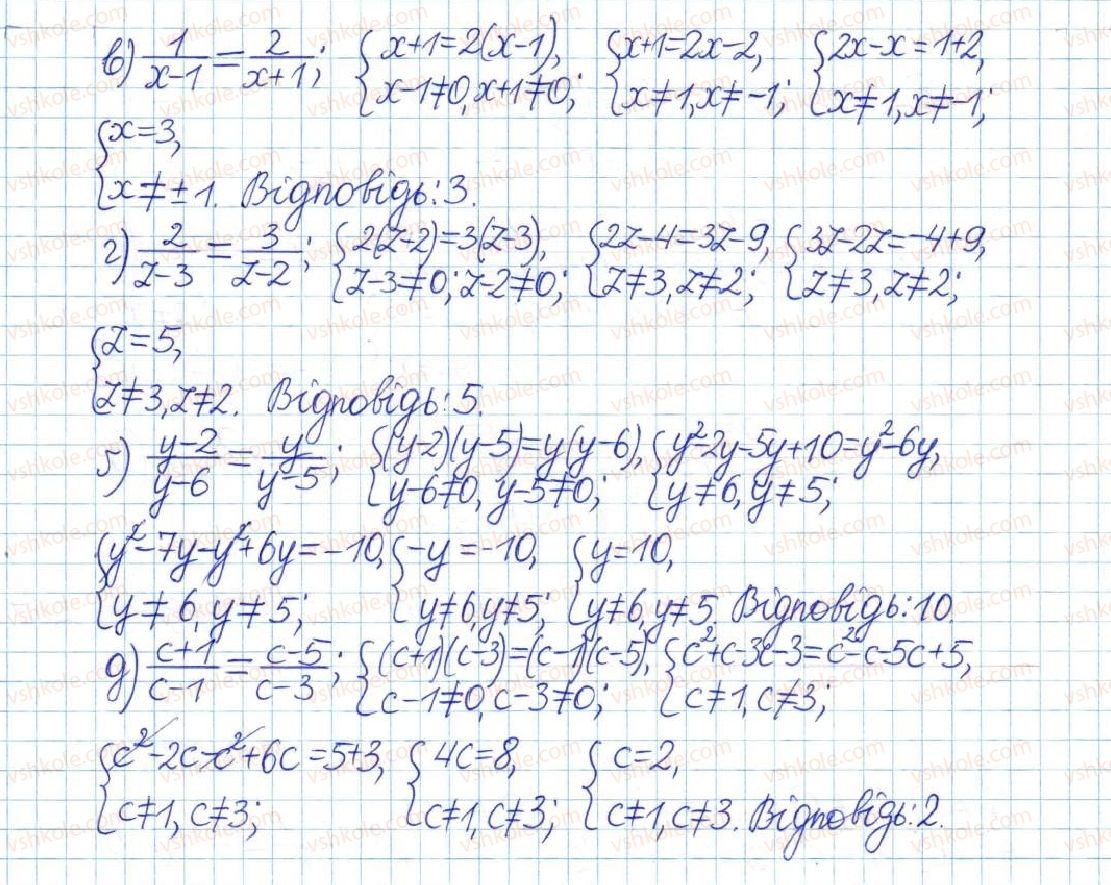 в) 1/(x-1) = 2/(x+1); { x+1=2(x-1), x-1≠0, x+1≠0; { x+1=2x-2, x≠1, x≠-1; { 2x-x=1+2, x≠1, x≠-1;
{ x=3, x≠±1. Відповідь: 3.
г) 2/(z-3) = 3/(z-2); { 2(z-2)=3(z-3), z-3≠0; z-2≠0; { 2z-4=3z-9, z≠3, z≠2; { 3z-2z=-4+9, z≠3, z≠2;
{ z=5, z≠3, z≠2. Відповідь: 5.
ґ) (y-2)/(y-6) = y/(y-5); { (y-2)(y-5)=y(y-6), y-6≠0, y-5≠0; { y²-2y-5y+10=y²-6y, y≠6, y≠5;
{ y²-7y-y²+6y=-10, y≠6, y≠5; { -y=-10, y≠6, y≠5; { y=10, y≠6, y≠5. Відповідь: 10.
д) (c+1)/(c-1) = (c-5)/(c-3); { (c+1)(c-3)=(c-1)(c-5), c-1≠0, c-3≠0; { c²+c-3c-3=c²-c-5c+5, c≠1, c≠3;
{ c²-2c-c²+6c=5+3, c≠1, c≠3; { 4c=8, c≠1, c≠3; { c=2, c≠1, c≠3. Відповідь: 2.